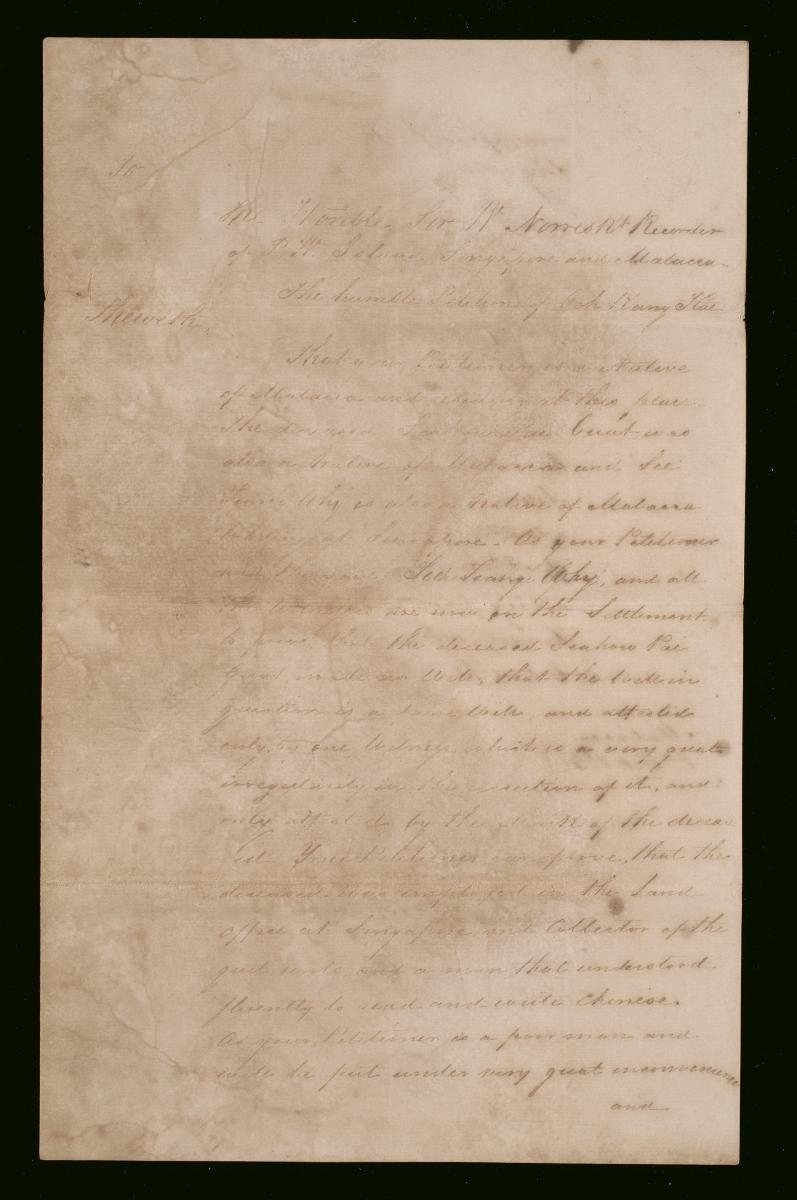 To
The Honble Sir W Norris Kt Recorder
of P. W. Island Singapore and Malacca
The humble Petition of Goh Kang Hae
Sheweth,
That your Petitioner is a Native
of Malacca and residing at this place
The deceased Pae Guat was
also a Native of Malacca and See
Tiang Why is also a Native of Malacca
residing at Singapore. As your Petitioner
and the said See Tiang Why, and all
the Witnesses are now in the Settlement
to prove, that the deceased Seahow Pae
Guat made no Will, that the Will in
question is a false Will, and attested
only by one Witness, which is a very great
irregularity in the execution of it, and
only attested by the Mark of the decea
sed Your Petitioner can prove, that the
deceased was employed in the Land
office at Singapore and Collector of the
quit rents, and a man that understood
fluently to read and write Chinese.
As your Petitioner is a poor man and
will be put under very great inconvenience
and